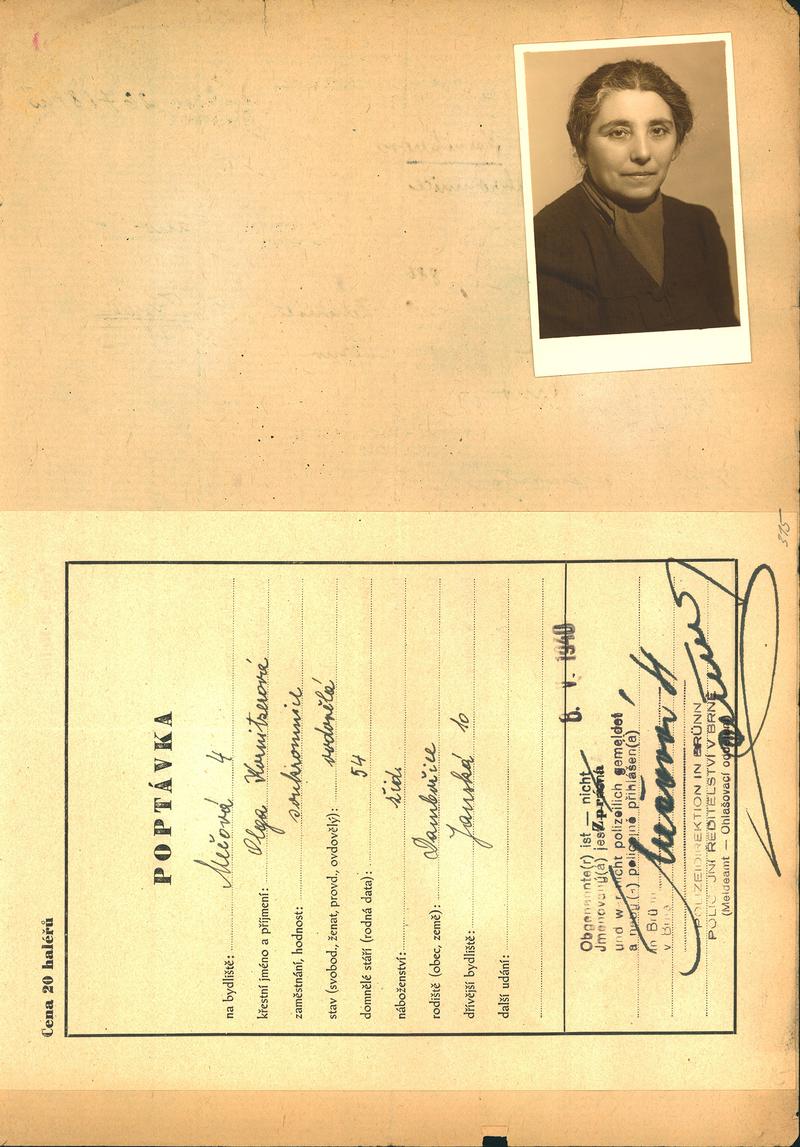 Cena 20 haléřů
POPTÁVKA
na bydliště: Mečová 4
křestní jméno a příjmení: Olga Kornitzerová
zaměstnání, hodnost: soukromnice
stav (svobod., ženat, provd., ovdovělý): ovdovělá
domnělé stáří (rodná data): 54
náboženství: žid.
rodiště (obec, země): Dambořice
dřívější bydliště: Janská 10
další udání:
6. V. 1940
Obgenannte(r) ist — nicht
Jmenovaný(á) jest
und w r nicht polizeilich gemeldet
a nebyl(-) policejně přihlášen(a)
in Brü
v Brně
POLIZEIDIREKTION IN BRÜNN
POLICEJNÍ ŘEDITELSTVÍ V BRNĚ
(Meldeamt — Ohlašovací
315